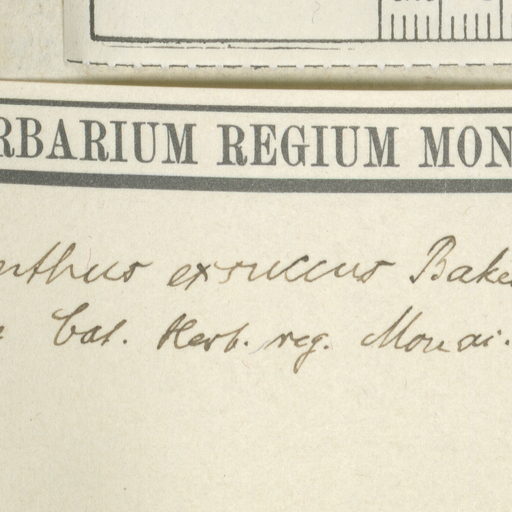 RBARIUM REGIUM MON
nthus exsuccus Bake
Cat. Herb. reg. Monac.